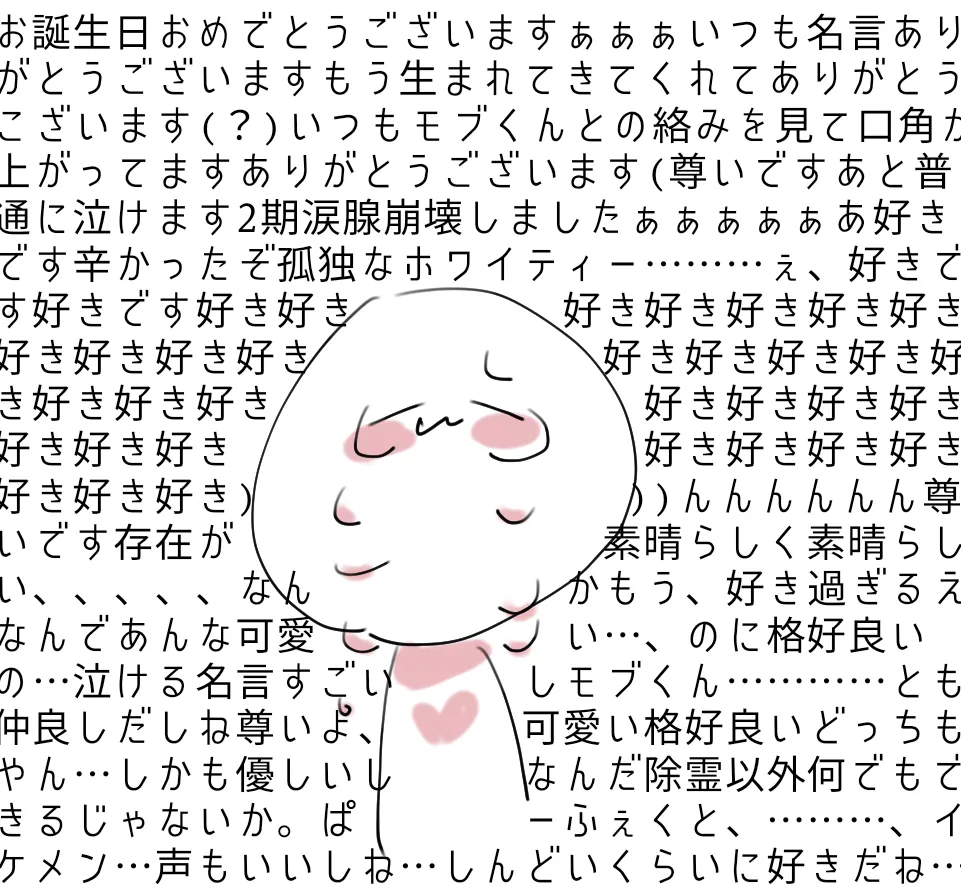 お誕生日おめでとうございますぁぁぁいつも名言あり
がとうございますもう生まれてきてくれてありがとう
ございます(？)いつもモブくんとの絡みを見て口角が
上がってますありがとうございます(尊いですあと普
通に泣けます2期涙腺崩壊しましたぁぁぁぁぁあ好き
です辛かったぞ孤独なホワイティー………ぇ、好きで
す好きです好き好き 好き好き好き好き好き
好き好き好き好き 好き好き好き好き好
き好き好き好き 好き好き好き好き
好き好き好き 好き好き好き好き
好き好き好き) ))んんんんんん尊
いです存在が 素晴らしく素晴らし
い、、、、、なん かもう、好き過ぎるえ
なんであんな可愛 い…、のに格好良い
の…泣ける名言すごい しモブくん…………とも
仲良しだしね尊いよ、 可愛い格好良いどっちも
やん…しかも優しいし なんだ除霊以外何でもで
きるじゃないか。ぱ ーふぇくと、………、イ
ケメン…声もいいしね…しんどいくらいに好きだね…